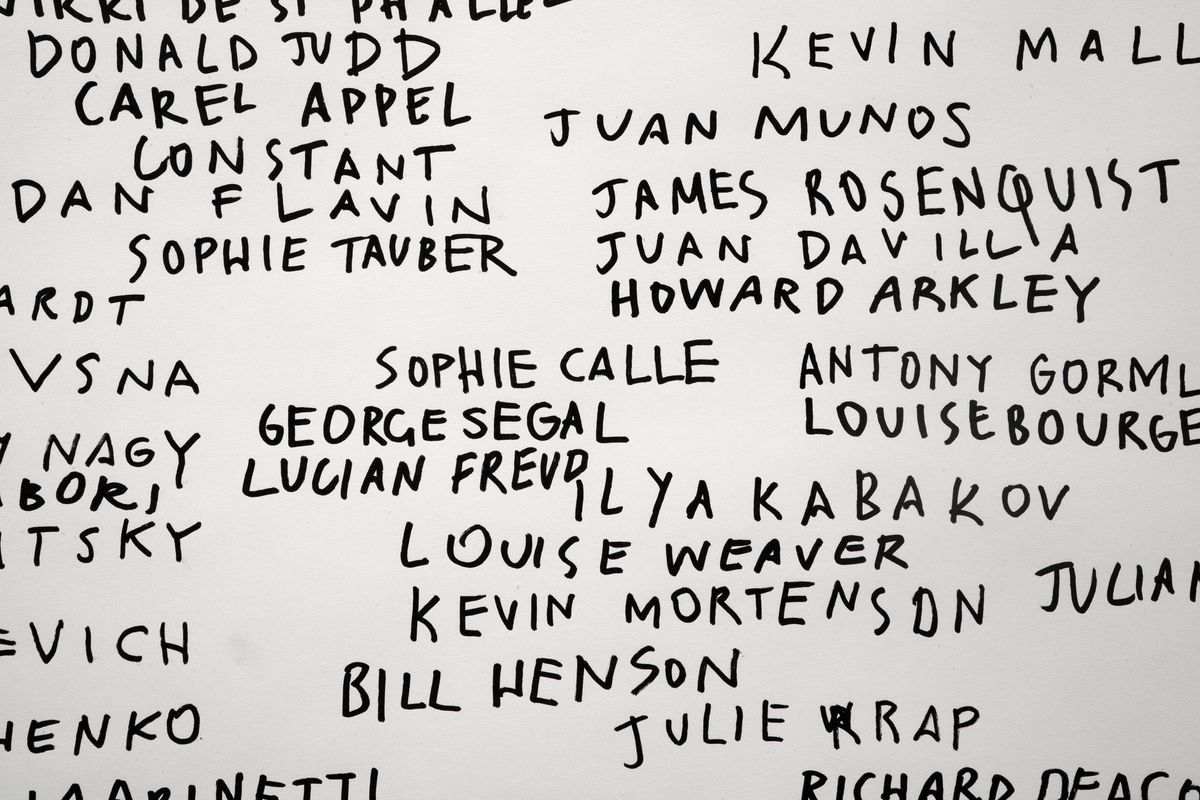 NIKKI DE ST PHALLE
DONALD JUDD
KEVIN MALL
CAREL APPEL
JUAN MUNOS
CONSTANT
DAN FLAVIN
JAMES ROSENQUIST
SOPHIE TAUBER
JUAN DAVILLA
ARDT
HOWARD ARKLEY
VSNA
SOPHIE CALLE
ANTONY GORML
GEORGE SEGAL
LOUISE BOURGE
Y NAGY
LUCIAN FREUD
BORI
ILYA KABAKOV
ITSKY
LOUISE WEAVER
KEVIN MORTENSON
JULIAN
EVICH
BILL HENSON
HENKO
JULIE RRAP
MARINETTI
RICHARD DEACO